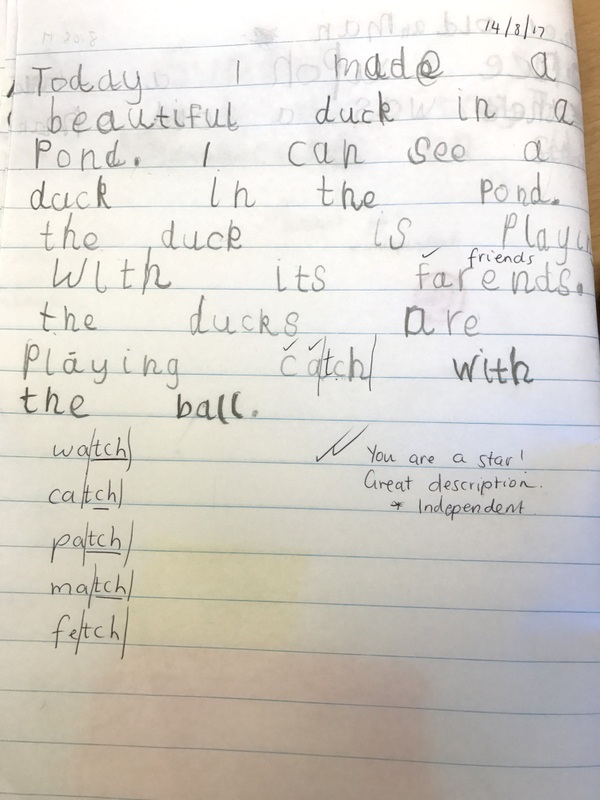 14/8/17
Today I made a
beautiful duck in a
Pond. I can see a
duck in the pond.
the duck is Playi
With its farends.
friends
the ducks are
Playing catch with
the ball.
watch
catch
patch
match
fetch
You are a star!
Great description.
* Independent